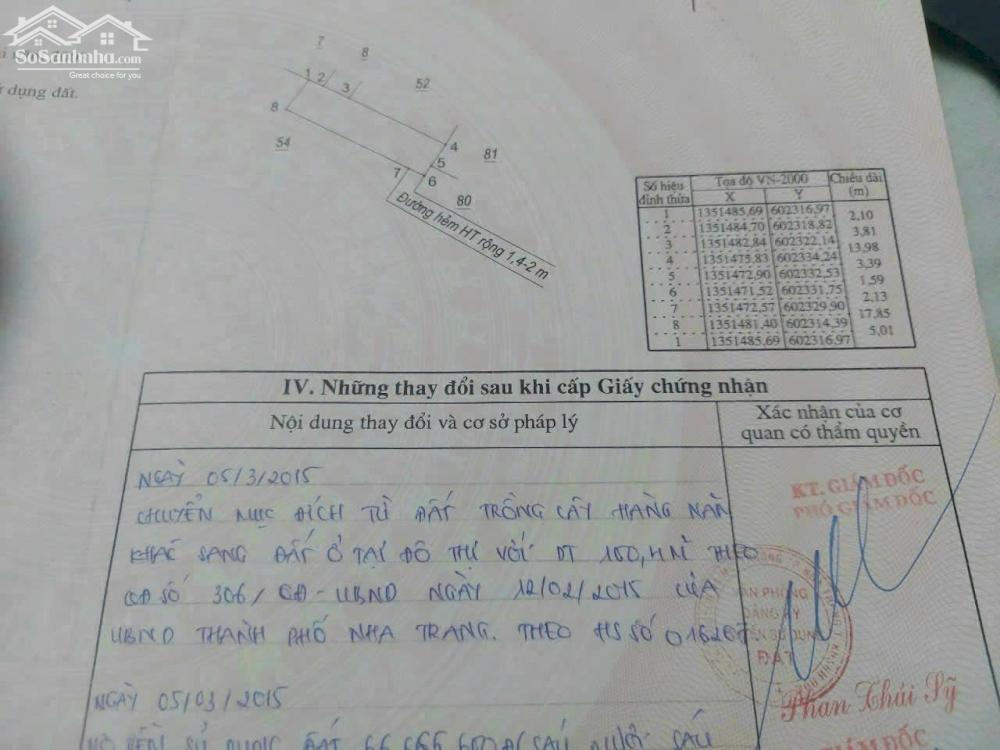 SoSanhnha.com
Great choice for you
ử dụng đất.
7
8
52
1
2
3
8
54
4
5
81
7
6
80
Đường hẻm HT rộng 1,4-2 m
Số hiệu đỉnh thửa
Tọa độ VN-2000
Chiều dài (m)
X
Y
1 1351485,69 602316,97
2,10
2 1351484,70 602318,82
3,81
3 1351482,84 602322,14
13,98
4 1351475,83 602334,24
3,39
5 1351472,90 602332,53
1,59
6 1351471,52 602331,75
2,13
7 1351472,57 602329,90
17,85
8 1351481,40 602314,39
5,01
1 1351485,69 602316,97
IV. Những thay đổi sau khi cấp Giấy chứng nhận
Nội dung thay đổi và cơ sở pháp lý
Xác nhận của cơ
quan có thẩm quyền
NGÀY 05/3/2015
CHUYỂN MỤC ĐÍCH TỪ ĐẤT TRỒNG CÂY HÀNG NĂM
KHÁC SANG ĐẤT Ở TẠI ĐÔ THỊ VỚI DT THEO
QĐ SỐ 306/QĐ-UBND NGÀY 12/02/2015 CỦA
UBND THÀNH PHỐ NHA TRANG. THEO HS SỐ
KT. GIÁM ĐỐC
PHÓ GIÁM ĐỐC
VĂN PHÒNG
ĐĂNG KÝ
QUYỀN SỬ DỤNG
ĐẤT
Phan Thái Sỹ
NGÀY 05/03/2015
GIÁM ĐỐC